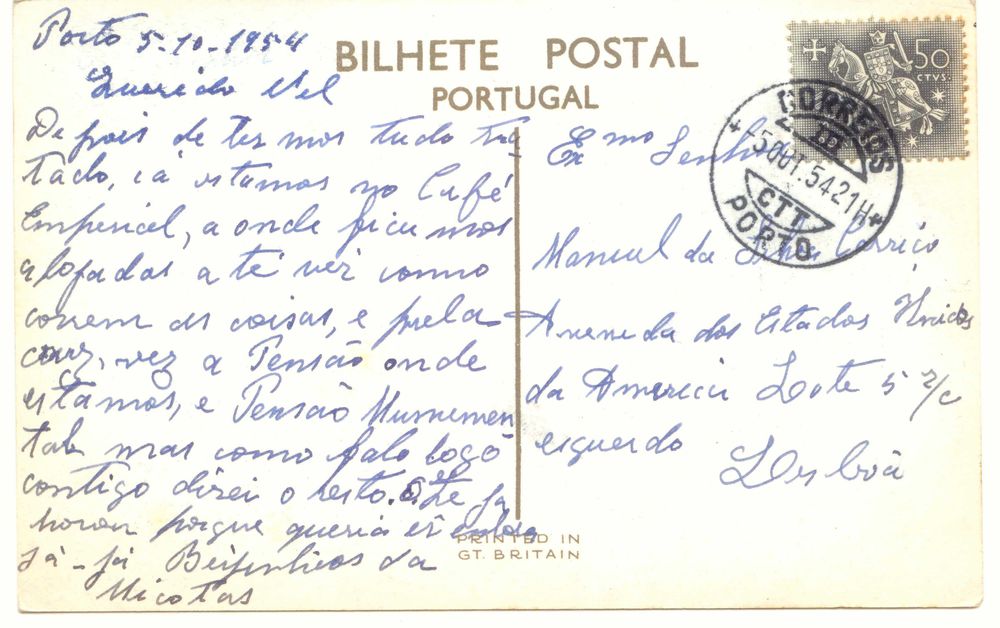 BILHETE POSTAL
PORTUGAL
50
CTVS.
CORREIOS
5 OUT. 54 21H
CTT
PORTO
Porto 5-10-1954
Querido Nel
Depois de termos tudo tra
tado, cá estamos no Café
Emperial, a onde ficumos
alojadas a té ver como
correm as coisas, e pela
vez a Pensão onde
estamos, e Pensão Munumen
tal mas como falo logo
contigo direi o resto. a Zé
porque queria ir
já-já Beijinhos da
Nicotas
Exmo Senhor
Manuel da Silva Carriço
Avenida dos Estados Unidos
da America Lote 5 r/c
esquerdo
Lisboa
PRINTED IN
GT. BRITAIN